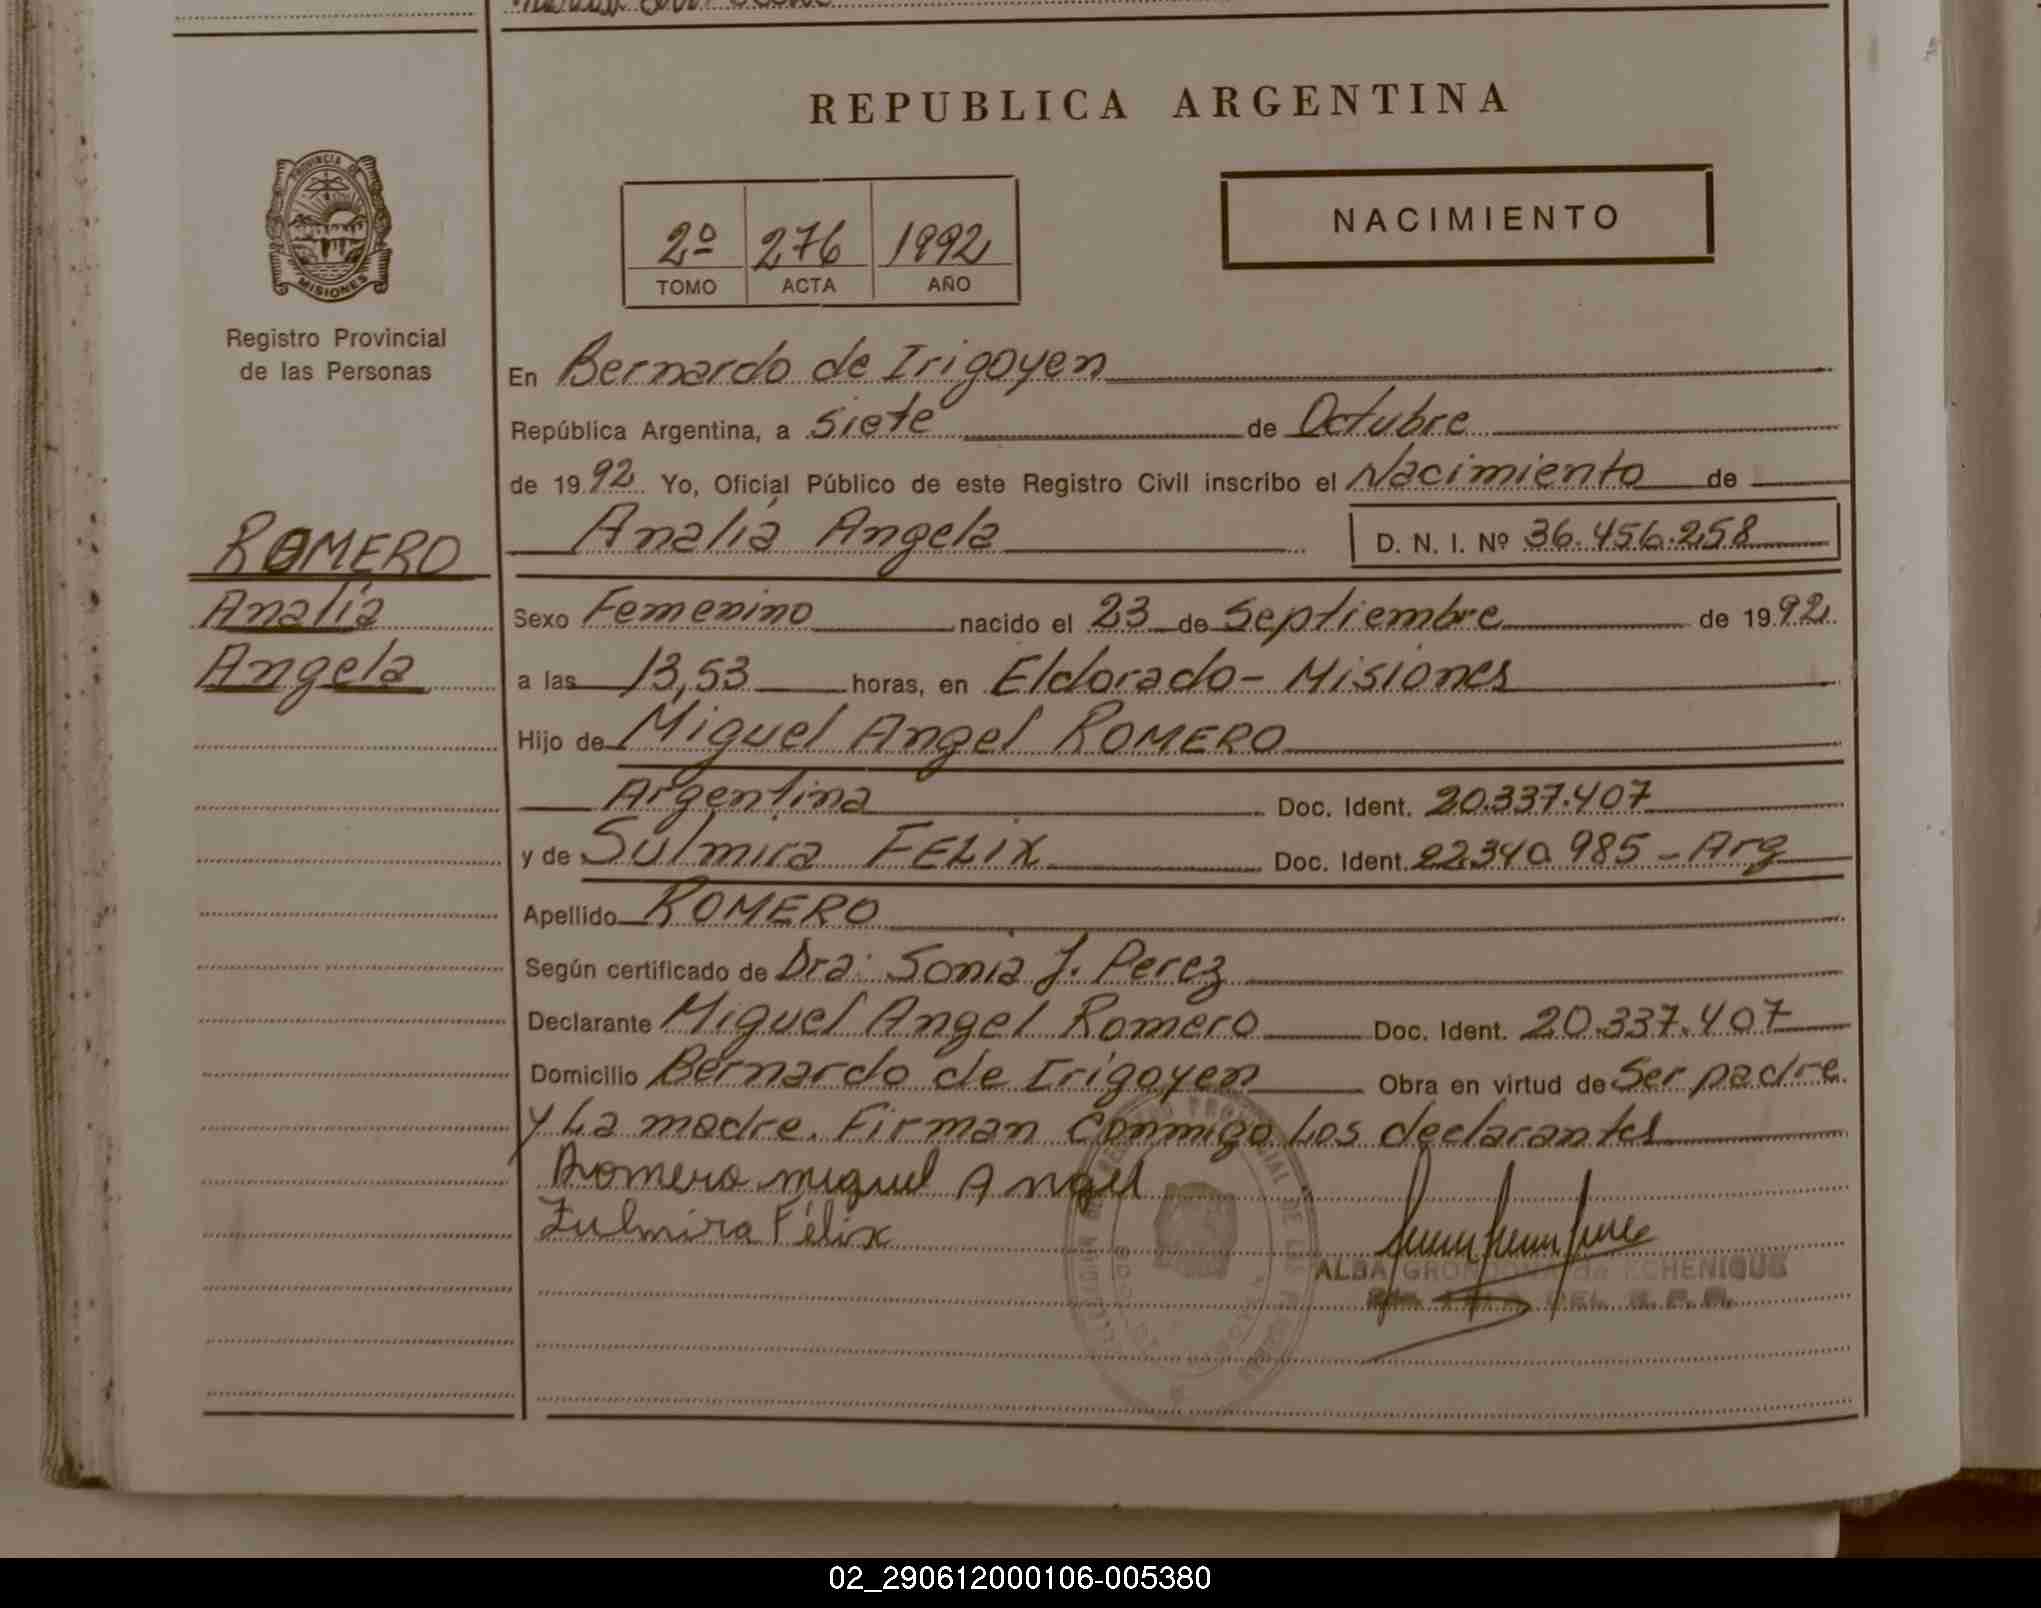 REPUBLICA ARGENTINA
PROVINCIA DE
MISIONES
Registro Provincial
de las Personas
2º 276 1992
TOMO ACTA AÑO
NACIMIENTO
En Bernardo de Irigoyen
República Argentina, a siete de Octubre
de 1992. Yo, Oficial Público de este Registro Civil inscribo el Nacimiento de
Analía Angela D. N. I. Nº 36.456.258
ROMERO
Analía
Angela
Sexo Femenino nacido el 23 de Septiembre de 1992.
a las 13,53 horas, en Eldorado - Misiones
Hijo de Miguel Angel ROMERO
Argentina Doc. Ident. 20.337.407
y de Sulmira FELIX Doc. Ident. 22.340.985 - Arg
Apellido ROMERO
Según certificado de Dra: Sonia J. Perez
Declarante Miguel Angel Romero Doc. Ident. 20.337.407
Domicilio Bernardo de Irigoyen Obra en virtud de Ser padre
y La madre. Firman Conmigo Los declarantes
Romero miguel Angel
Zulmira Félix
ALBA GRONDONA de ECHENIQUE
DEL R.P.P.
02_290612000106-005380